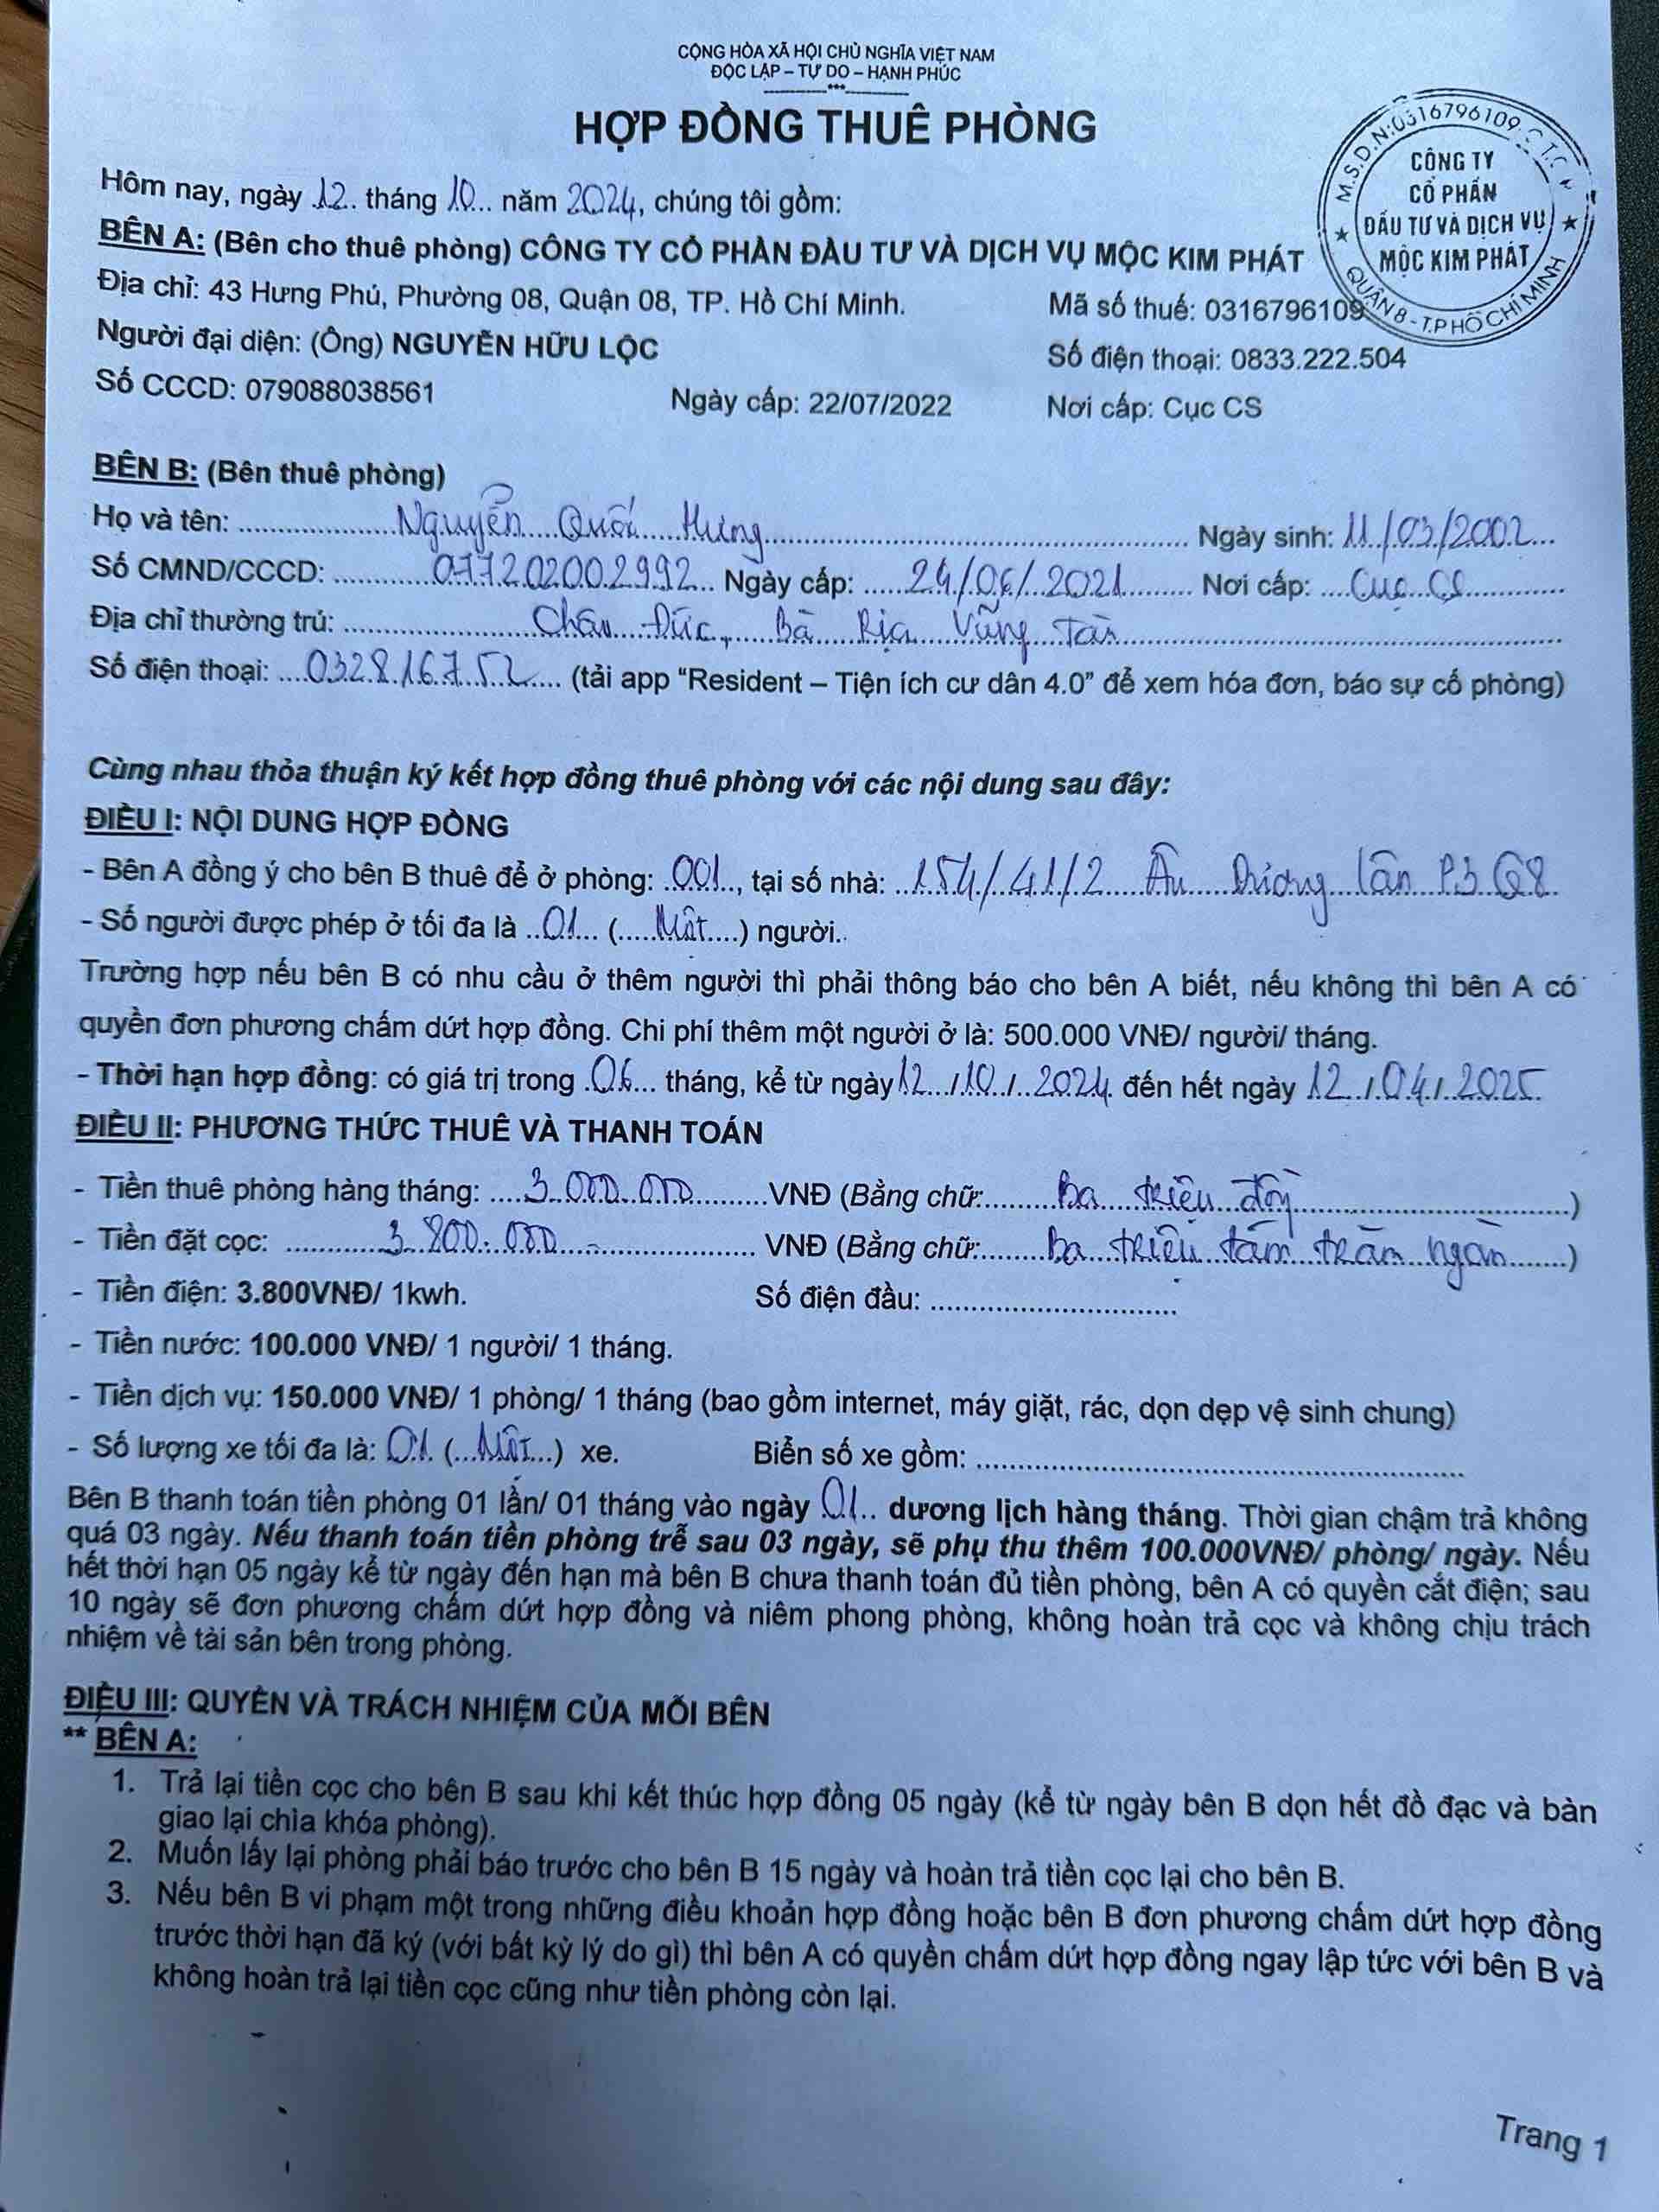 CỘNG HÒA XÃ HỘI CHỦ NGHĨA VIỆT NAM
ĐỘC LẬP – TỰ DO – HẠNH PHÚC
HỢP ĐỒNG THUÊ PHÒNG
M.S.D.N:0316796109-C.T.C.
CÔNG TY
CỔ PHẦN
ĐẦU TƯ VÀ DỊCH VỤ
MỘC KIM PHÁT
QUẬN 8 - T.P HỒ CHÍ MINH
Hôm nay, ngày 12 tháng 10 năm 2024, chúng tôi gồm:
BÊN A: (Bên cho thuê phòng) CÔNG TY CỔ PHẦN ĐẦU TƯ VÀ DỊCH VỤ MỘC KIM PHÁT
Địa chỉ: 43 Hưng Phú, Phường 08, Quận 08, TP. Hồ Chí Minh. Mã số thuế: 0316796109
Người đại diện: (Ông) NGUYỄN HỮU LỘC Số điện thoại: 0833.222.504
Số CCCD: 079088038561 Ngày cấp: 22/07/2022 Nơi cấp: Cục CS
BÊN B: (Bên thuê phòng)
Họ và tên: Nguyễn Quốc Hưng Ngày sinh: 11/03/2002
Số CMND/CCCD: 077202002992 Ngày cấp: 24/06/2021 Nơi cấp: Cục CS
Địa chỉ thường trú: Châu Đức, Bà Rịa Vũng Tàu
Số điện thoại: 0328.167.52 (tải app “Resident – Tiện ích cư dân 4.0” để xem hóa đơn, báo sự cố phòng)
Cùng nhau thỏa thuận ký kết hợp đồng thuê phòng với các nội dung sau đây:
ĐIỀU I: NỘI DUNG HỢP ĐỒNG
- Bên A đồng ý cho bên B thuê để ở phòng: 001, tại số nhà: 154/41/2 Âu Dương Lân P3 Q8
- Số người được phép ở tối đa là 01 (Một) người.
Trường hợp nếu bên B có nhu cầu ở thêm người thì phải thông báo cho bên A biết, nếu không thì bên A có
quyền đơn phương chấm dứt hợp đồng. Chi phí thêm một người ở là: 500.000 VNĐ/ người/ tháng.
- Thời hạn hợp đồng: có giá trị trong 06 tháng, kể từ ngày 12/10/2024 đến hết ngày 12/04/2025.
ĐIỀU II: PHƯƠNG THỨC THUÊ VÀ THANH TOÁN
- Tiền thuê phòng hàng tháng: 3.000.000 VNĐ (Bằng chữ: Ba triệu đồng)
- Tiền đặt cọc: 3.800.000 VNĐ (Bằng chữ: Ba triệu tám trăm ngàn)
- Tiền điện: 3.800VNĐ/ 1kwh. Số điện đầu:
- Tiền nước: 100.000 VNĐ/ 1 người/ 1 tháng.
- Tiền dịch vụ: 150.000 VNĐ/ 1 phòng/ 1 tháng (bao gồm internet, máy giặt, rác, dọn dẹp vệ sinh chung)
- Số lượng xe tối đa là: 01 (Một) xe. Biển số xe gồm:
Bên B thanh toán tiền phòng 01 lần/ 01 tháng vào ngày 01 dương lịch hàng tháng. Thời gian chậm trả không
quá 03 ngày. Nếu thanh toán tiền phòng trễ sau 03 ngày, sẽ phụ thu thêm 100.000VNĐ/ phòng/ ngày. Nếu
hết thời hạn 05 ngày kể từ ngày đến hạn mà bên B chưa thanh toán đủ tiền phòng, bên A có quyền cắt điện; sau
10 ngày sẽ đơn phương chấm dứt hợp đồng và niêm phong phòng, không hoàn trả cọc và không chịu trách
nhiệm về tài sản bên trong phòng.
ĐIỀU III: QUYỀN VÀ TRÁCH NHIỆM CỦA MỖI BÊN
** BÊN A:
1. Trả lại tiền cọc cho bên B sau khi kết thúc hợp đồng 05 ngày (kể từ ngày bên B dọn hết đồ đạc và bàn
giao lại chìa khóa phòng).
2. Muốn lấy lại phòng phải báo trước cho bên B 15 ngày và hoàn trả tiền cọc lại cho bên B.
3. Nếu bên B vi phạm một trong những điều khoản hợp đồng hoặc bên B đơn phương chấm dứt hợp đồng
trước thời hạn đã ký (với bất kỳ lý do gì) thì bên A có quyền chấm dứt hợp đồng ngay lập tức với bên B và
không hoàn trả lại tiền cọc cũng như tiền phòng còn lại.
Trang 1